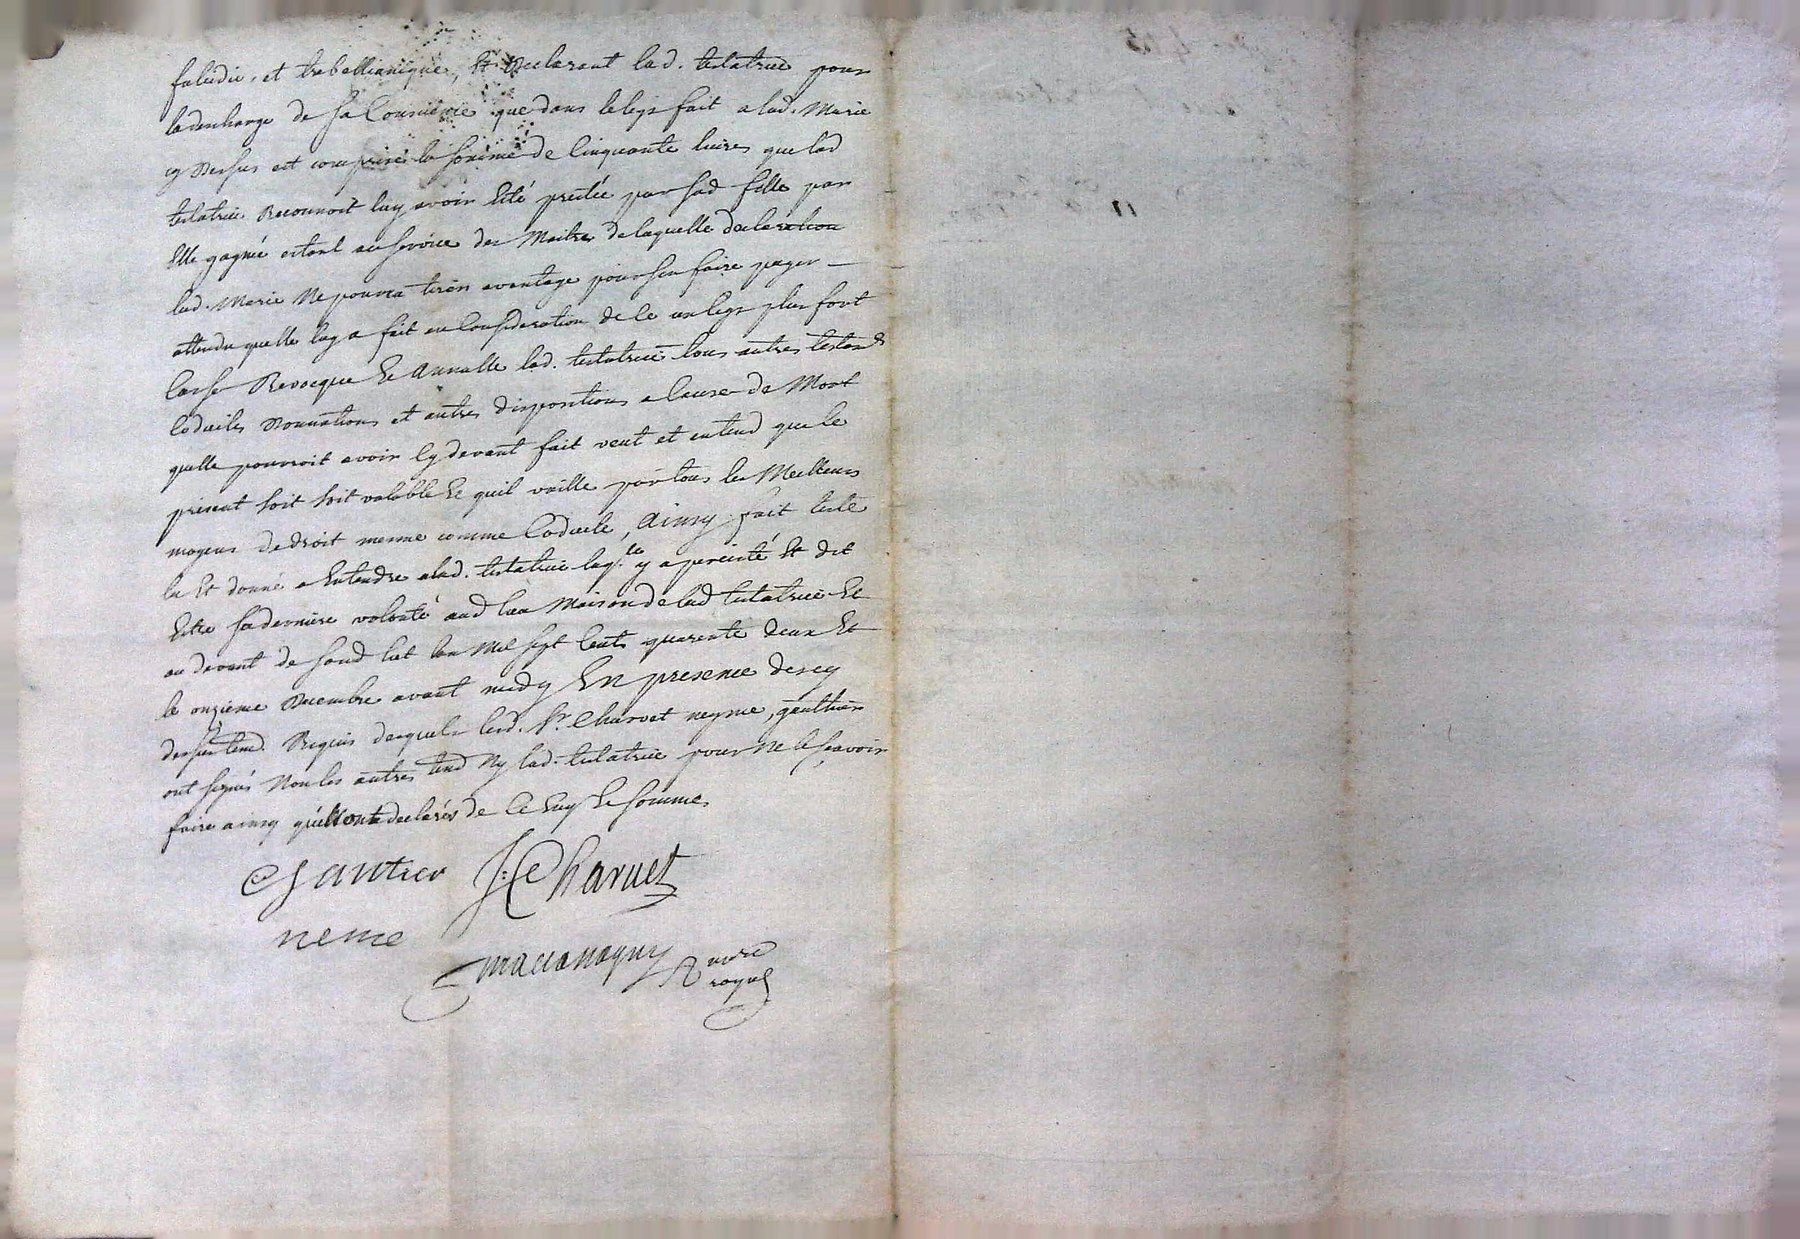 falcidie, et trebellianique, Et declarant lad. testatrice pour
la descharge de sa Consience que dans le legs fait a lad. Marie
cy dessus est comprise la somme de Cinquante livres que lad
testatrice Reconnoit luy avoir Eté pretée par sad fille par
Elle gagnée estant au service des Maitres de laquelle declaration
lad. Marie Ne pourra tirer avantage pour sen faire payer
attendu quelle luy a fait en Consideration de ce un legs plus fort
Casse Revocque Et Annulle lad. testatrice tous autres testam.ts
Codiciles donnations et autres dispositions a Cause de Mort
quelle pourroit avoir Cy devant fait veut et entend que le
present soit soit valable Et quil vaille par tous les Meilleurs
moyens de droit mesme comme Codicile, Ainsy fait testé
lu Et donné a Entendre a lad. testatrice laq.le y a persisté Et dit
Estre sa derniere volonté aud lieu Maison de lad testatrice Et
au devant de soud lict lan Mil sept Cents quarente deux Et
le onzieme decembre avant midy En presence des cy
dessus temd. Requis desquels led. Sr. Charvet neyme, gaulthier
ont signés Non les autres temd Ny lad. testatrice pour Ne le sçavoir
faire ainsy quils ont declarés de Ce Enq Et sommes
Gautier J: Charuet
neme
no.re
royal